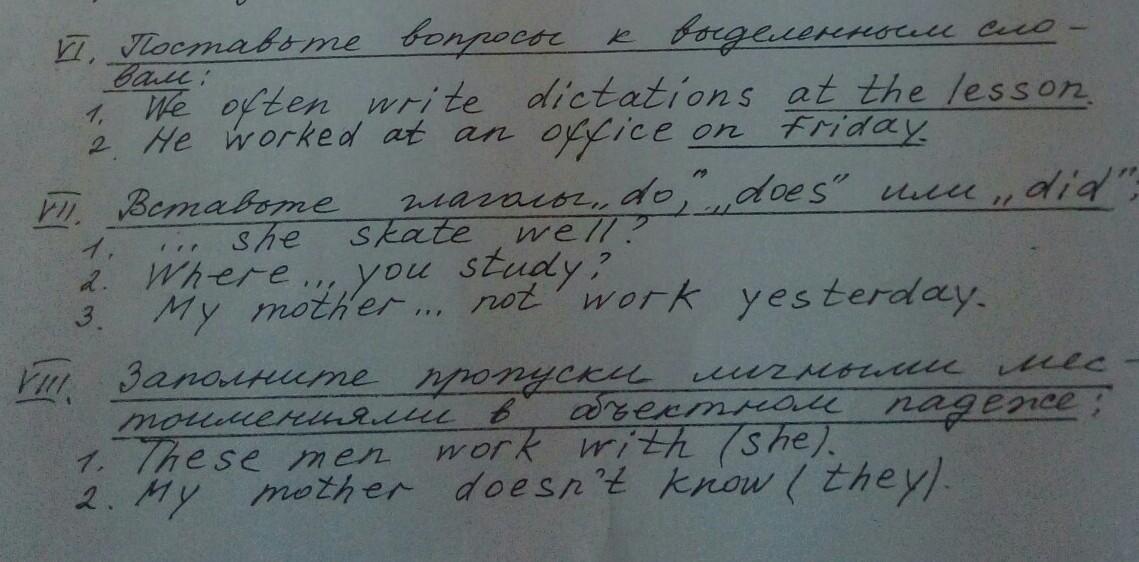 VI. Поставьте вопросы к выделенным сло-
вам:
1. We often write dictations at the lesson.
2. He worked at an office on Friday.
VII. Вставьте глаголы „do”, „does” или „did”:
1. ... she skate well?
2. Where... you study?
3. My mother... not work yesterday.
VIII. Заполните пропуски личными мес-
тоимениями в объектном падеже:
1. These men work with (she).
2. My mother doesn't know (they).